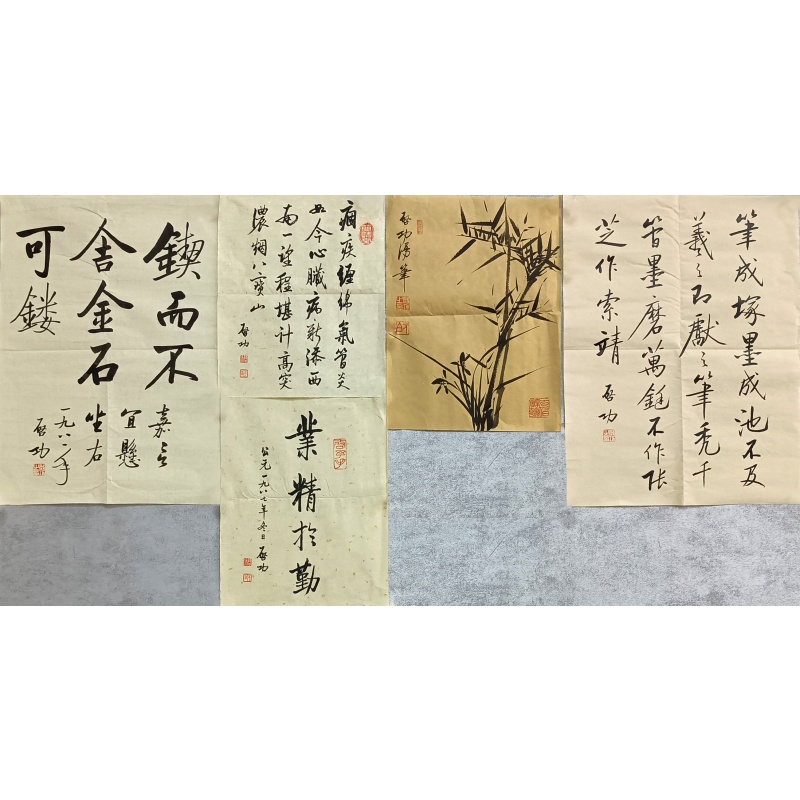 鍥而不
舍金石
可鏤
嘉言
宜懸
坐右
一九八一年
啟功
痼疾纏綿氣管炎
如今心臟病新添西
南一望程堪計高突
濃烟八寶山
啟功
業精於勤
公元一九八七年冬日 啟功
啟功湯筆
筆成塚墨成池不及
羲之即獻之筆禿千
管墨磨萬鋌不作張
芝作索靖
啟功